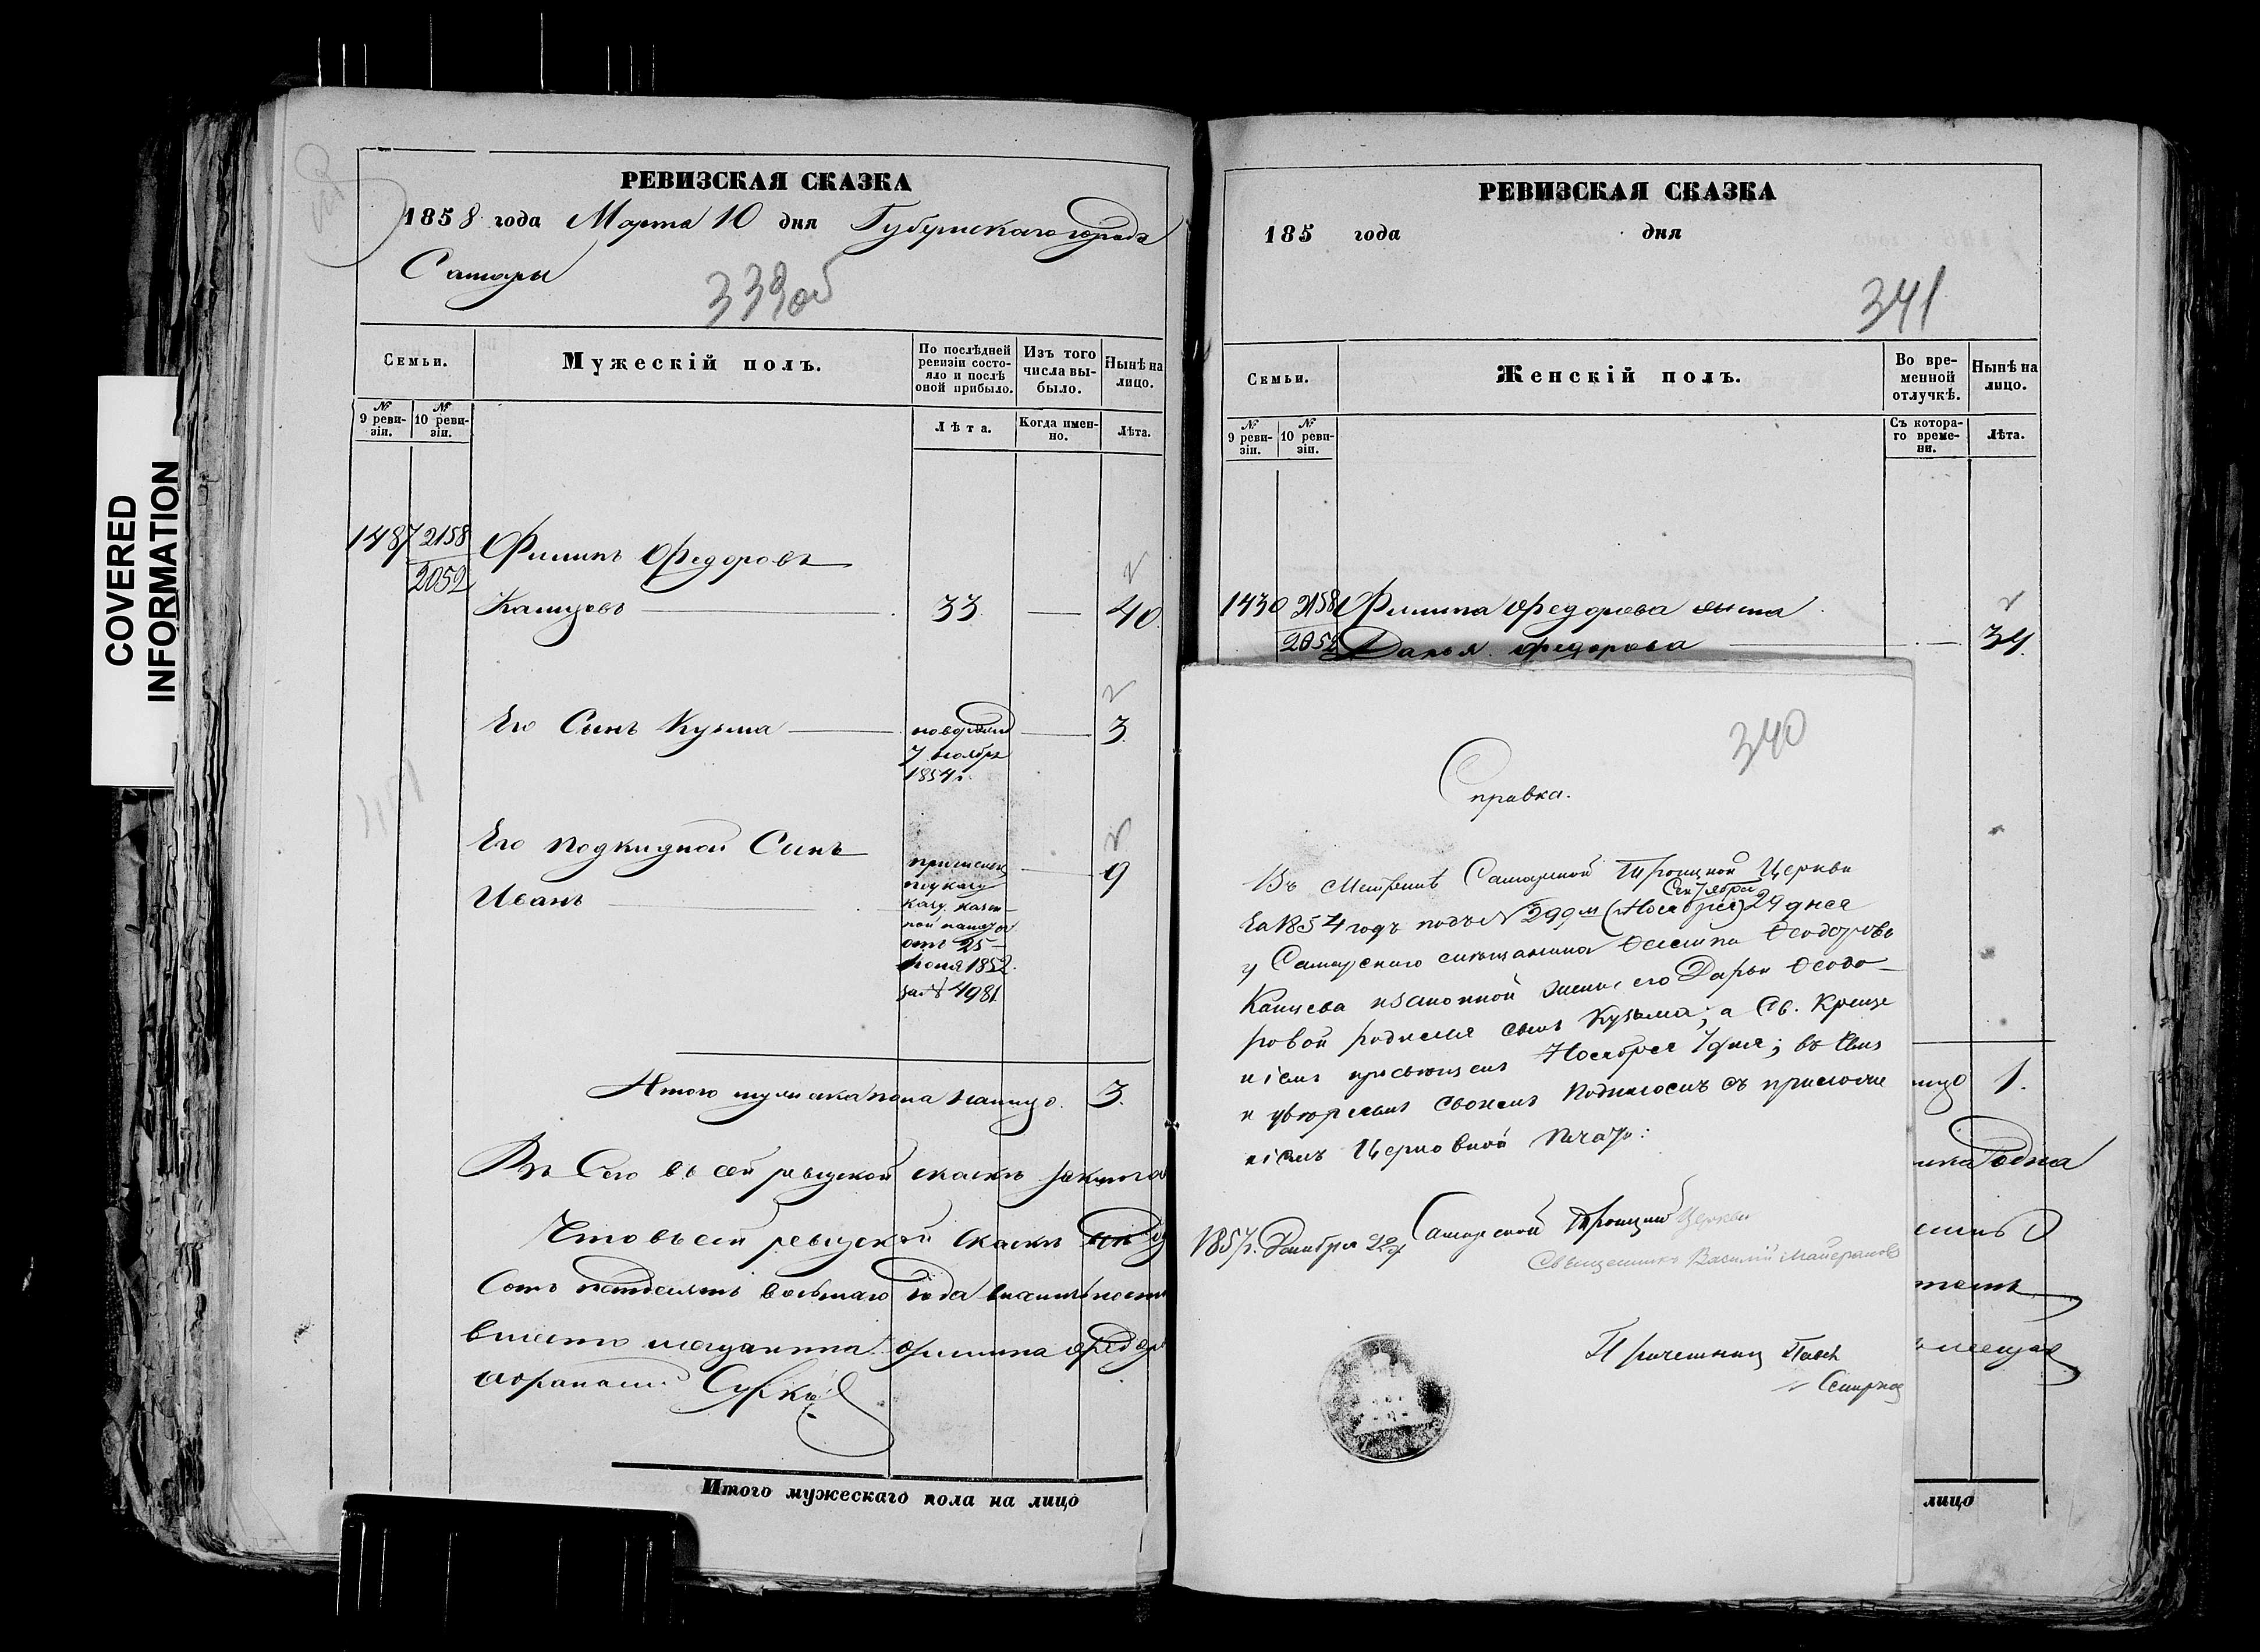 COVERED
INFORMATION
РЕВИЗСКАЯ СКАЗКА
1858 года Марта 10 дня Губернскаго города
Самары
339об
Семьи.
Мужескій полъ.
По послѣдней ревизіи состо-
яло и послѣ оной прибыло.
Изъ того числа вы-
было.
Нынѣ на лицо.
№ 9 реви-
зіи.
№ 10 реви-
зіи.
Лѣта.
Когда имен-
но.
Лѣта.
1487 2158
2052
Филипъ Федоровъ
Капцовъ 33 40
Его Сынъ Кузьма 3
7 ноября
1854 г.
Его подкидной Сынъ
Иванъ 9
отъ 25
1852
за № 4981
Итого мужеска пола налицо 3.
Что въ сей ревизской скаскѣ
сотъ пятдесятъ восьмаго года
вместо мещанина Филипа Федор
Итого мужескаго пола на лицо
РЕВИЗСКАЯ СКАЗКА
185 года дня
341
Семьи.
Женскій полъ.
Во вре-
менной отлучкѣ.
Нынѣ на лицо.
№ 9 реви-
зіи.
№ 10 реви-
зіи.
Съ котора-
го време-
ни.
Лѣта.
1430 2158 Филипа Федорова жена
2052 Дарья Федорова 34
340
Справка.
Въ Метрикѣ Самарской Троицкой Церкви
Сентября
за 1854 годъ подъ № 299 м (Ноября) 24 дня
у Самарскаго мѣщанина Филипа Феодоровъ
Капцева изаконной жены его Дарьи Феодо-
ровой родился сынъ Кузьма; а Св. Креще
ніемъ просвѣщенъ Ноября 7 дня; въ чемъ
и увѣряемъ своимъ подписомъ съ приложе
ніемъ Церковной печати:
1857 г. Декабря Самарской Троицкой Церкви
Священникъ Василій
Смирнов
1.
одна
лицо